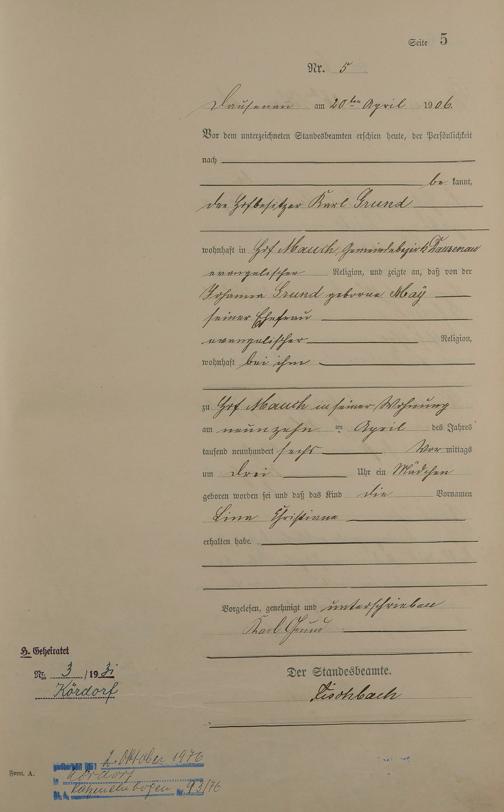 Seite 5
Nr. 5
Dausenau am 20ten April 1906.
Vor dem unterzeichneten Standesbeamten erschien heute, der Persönlichkeit
nach
be kannt,
der Hofbesitzer Karl Grund
wohnhaft in Hof Mauch, Gemeindebezirk Dausenau
evangelischer Religion, und zeigte an, daß von der
Johanna Grund geborne May
seiner Ehefrau
evangelischer Religion,
wohnhaft bei ihm
zu Hof Mauch in seiner Wohnung
am neunzehn ten April des Jahres
tausend neunhundert sechs Vor mittags
um drei Uhr ein Mädchen
geboren worden sei und daß das Kind die Vornamen
Lina Christiane
erhalten habe.
Vorgelesen, genehmigt und unterschrieben
Karl Grund
Der Standesbeamte.
Fischbach
H. Geheiratet
Nr. 3 / 1931
Kördorf
gestorben am 2. Oktober 1976
in Kördorf
St. A. Katzenelnbogen Nr. 93/76
Form. A.